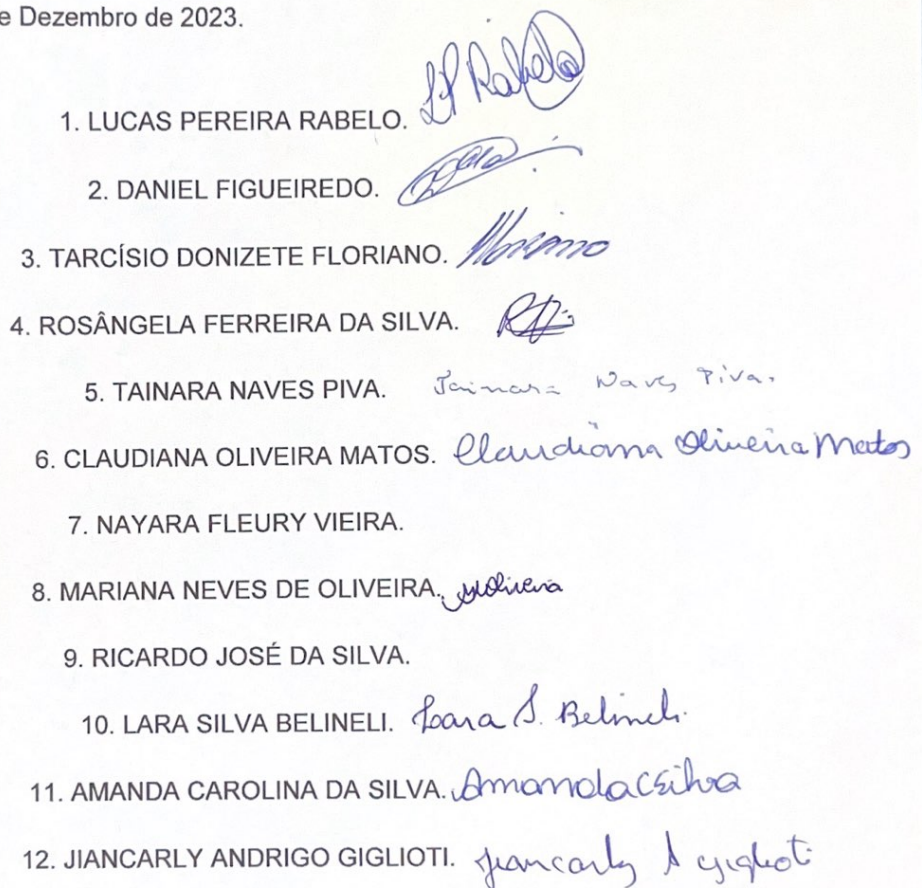 e Dezembro de 2023.
1. LUCAS PEREIRA RABELO. LP Rabelo
2. DANIEL FIGUEIREDO.
3. TARCÍSIO DONIZETE FLORIANO. Floriano
4. ROSÂNGELA FERREIRA DA SILVA.
5. TAINARA NAVES PIVA. Tainara Naves Piva.
6. CLAUDIANA OLIVEIRA MATOS. Claudiana Oliveira Matos
7. NAYARA FLEURY VIEIRA.
8. MARIANA NEVES DE OLIVEIRA. MOliveira
9. RICARDO JOSÉ DA SILVA.
10. LARA SILVA BELINELI. Lara S. Belineli.
11. AMANDA CAROLINA DA SILVA. AmandaCSilva
12. JIANCARLY ANDRIGO GIGLIOTI. Jiancarly A giglioti